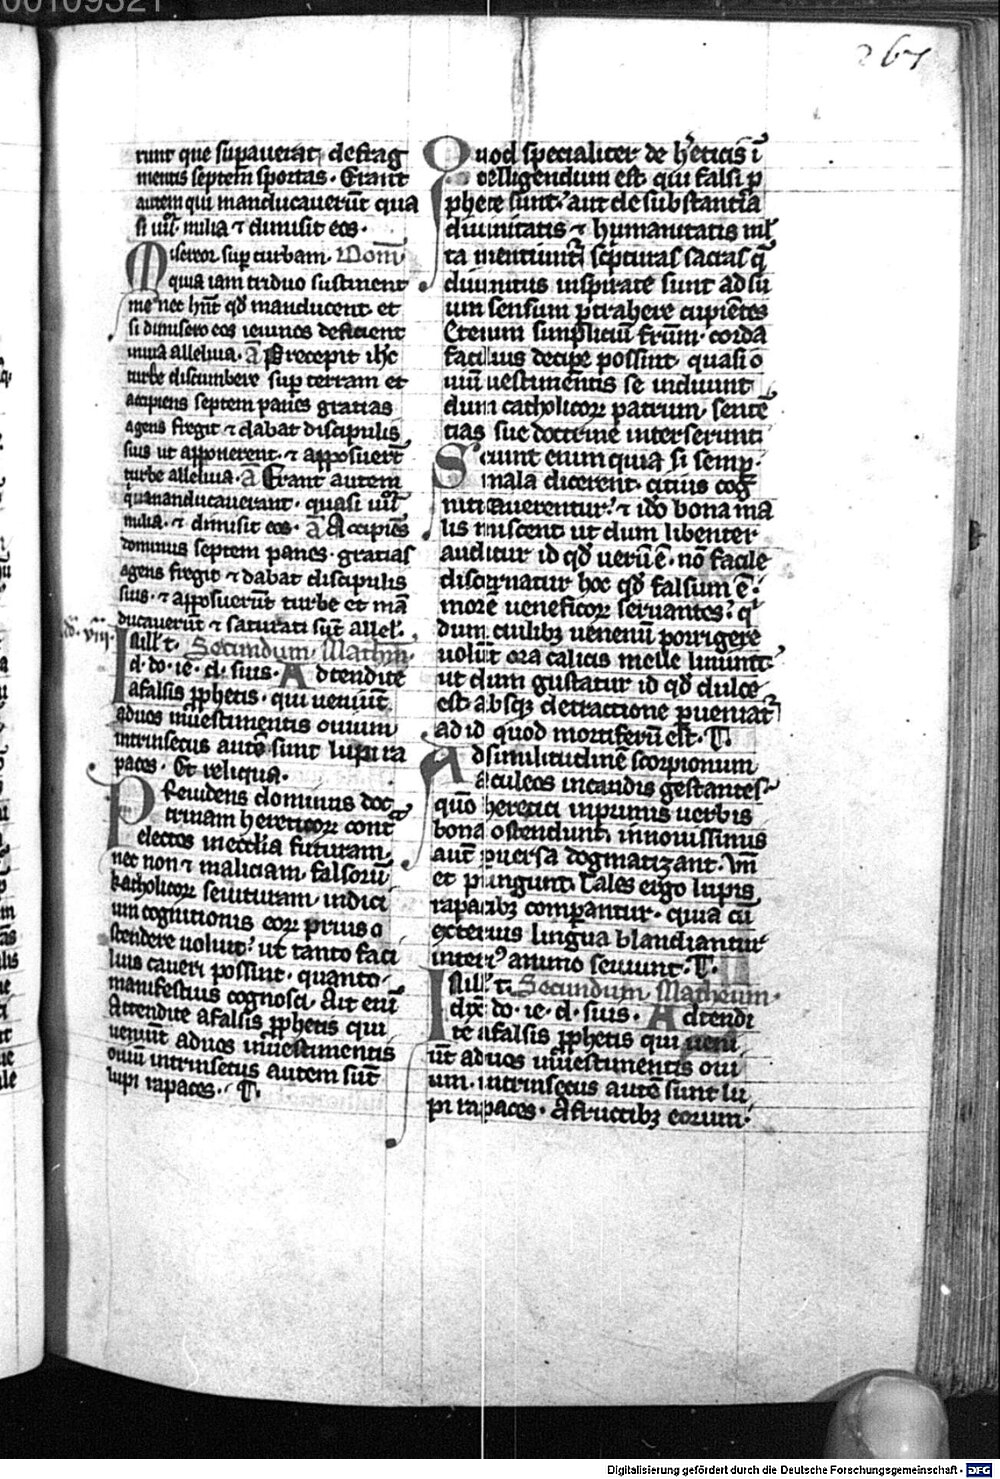 00109321
267
runt que supauerat de frag
mentis septem sportas. Erant
autem qui manducauerūt qua
si iiii. milia ⁊ dimisit eos.
Misereor sup turbam.
quia iam triduo sustinent
me nec hn̄t qd̄ manducent. et
si dimisero eos ieiunos deficient
in uia alleluia. a̅ Precepit ihc̅
turbe discumbere sup terram et
accipiens septem panes gratias
agens fregit ⁊ dabat discipulis
suis ut apponerent. ⁊ apposuerūt
turbe alleluia. a̅ Erant autem
qui manducauerant. quasi iiii.
milia. ⁊ dimisit eos. a̅ Accipiēs
dominus septem panes. gratias
agens fregit ⁊ dabat discipulis
suis. ⁊ apposuerūt turbe et mā
ducauerūt ⁊ saturati sūt allel̄.
do. viii.
In ill̄ t. Secundum Mathm̄.
d. do. ie. d. suis. Adtendite
a falsis ꝓphetis. qui ueniūt
ad uos in uestimentis ouium
intrinsecus autē sunt lupi ra
paces. Et reliqua.
Preuidens dominus doc
trinam hereticoꝝ cont̄
electos in ecclia futuram
nec non ⁊ maliciam falsorū
katholicoꝝ seuituram iudici
um cognitionis eoꝝ prius o
stendere uoluit. ut tanto faci
lius caueri possint. quanto
manifestius cognosci. Ait eni
Attendite a falsis ꝓphetis qui
ueniūt ad uos in uestimentis
ouiū intrinsecus autem sūt
lupi rapaces. T.
Quod specialiter de hēticis ī
telligendum est. qui falsi ꝓ
phete sunt. aut de substantia
diuinitatis ⁊ humanitatis ml̄
ta mentiunt̄ scpturas sacras q̄
diuinitus inspirate sunt ad su
um sensum ꝑtrahere cupientes
Ceterum simpliciū frūm. corda
facilius decipe possint. quasi o
uiū uestimentis se induunt
dum catholicoꝝ patrum. sentē
tias sue doctrine interserunt.
Sciunt enim quia si semp.
mala dicerent. citius cog
niti cauerentur. ⁊ ido bona ma
lis miscent ut dum libenter
auditur id qd̄ uerū ē. nō facile
discernatur hoc qd̄ falsum ē.
morē ueneficoꝝ seruantes. q̄
dum cuilibꝫ uenenū porrigere
uolūt ora calicis melle liniunt.
ut dum gustatur id qd̄ dulce
est absqꝫ detractione ꝑueniat̄
ad id quod mortiferū est. T.
Ad similitudinē scorpionum
aculeos in caudis gestantes
quō heretici in primis uerbis
bona ostendunt. in nouissimis
aūt ꝑuersa dogmatizant. Vn̄
et pungunt. Tales ergo lupis
rapacibꝫ comparantur. quia cū
exterius lingua blandiantur
interi⁹ animo seuiunt. T.
In ill̄ t. Secundum Matheum.
dx̄. do. ie. d. suis. Adtendi
te a falsis ꝓphetis qui ueni
ūt ad uos in uestimentis oui
um. intrinsecus autē sunt lu
pi rapaces. A fructibꝫ eorum.
Digitalisierung gefördert durch die Deutsche Forschungsgemeinschaft - DFG